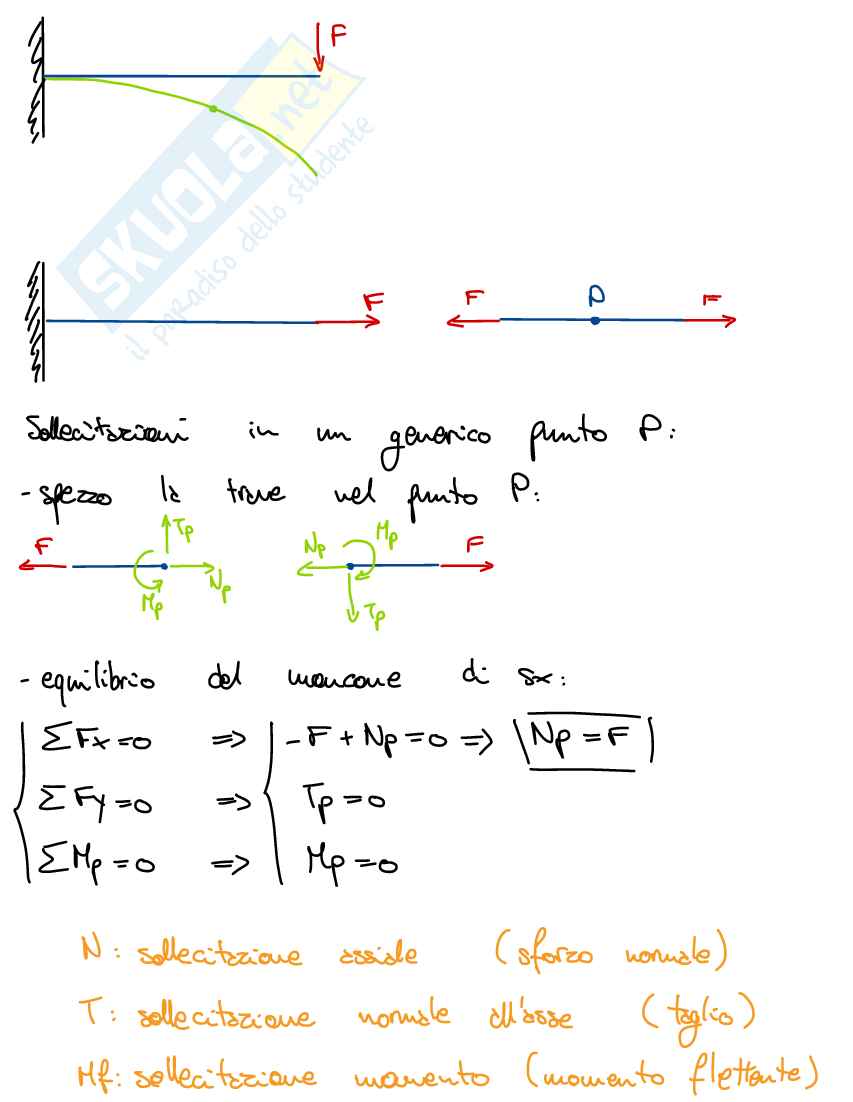 F
SKUOLA.net
il paradiso dello studente
F
F P F
Sollecitazioni in un generico punto P:
- spezzo la trave nel punto P:
F Tp Np Mp
Np Mp F Tp
- equilibrio del moncone di sx:
ΣFx=0 => -F+Np=0 => Np=F
ΣFy=0 => Tp=0
ΣMp=0 => Mp=0
N: sollecitazione assiale (sforzo normale)
T: sollecitazione normale all'asse (taglio)
Mf: sollecitazione momento (momento flettente)